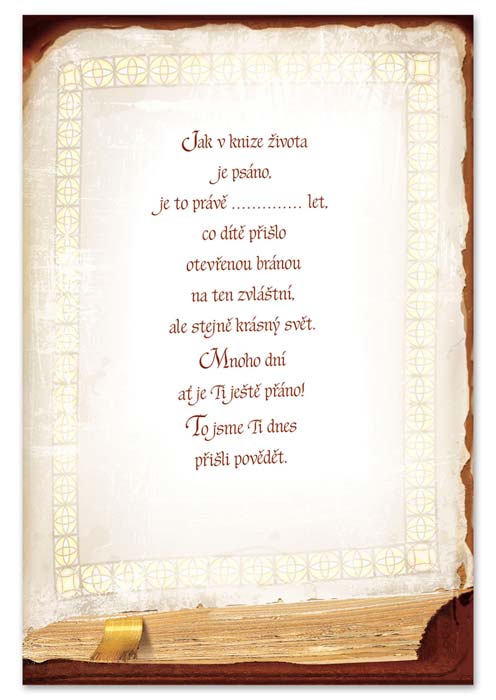 Jak v knize života
je psáno,
je to právě .............. let,
co dítě přišlo
otevřenou bránou
na ten zvláštní,
ale stejně krásný svět.
Mnoho dní
ať je Ti ještě přáno!
To jsme Ti dnes
přišli povědět.